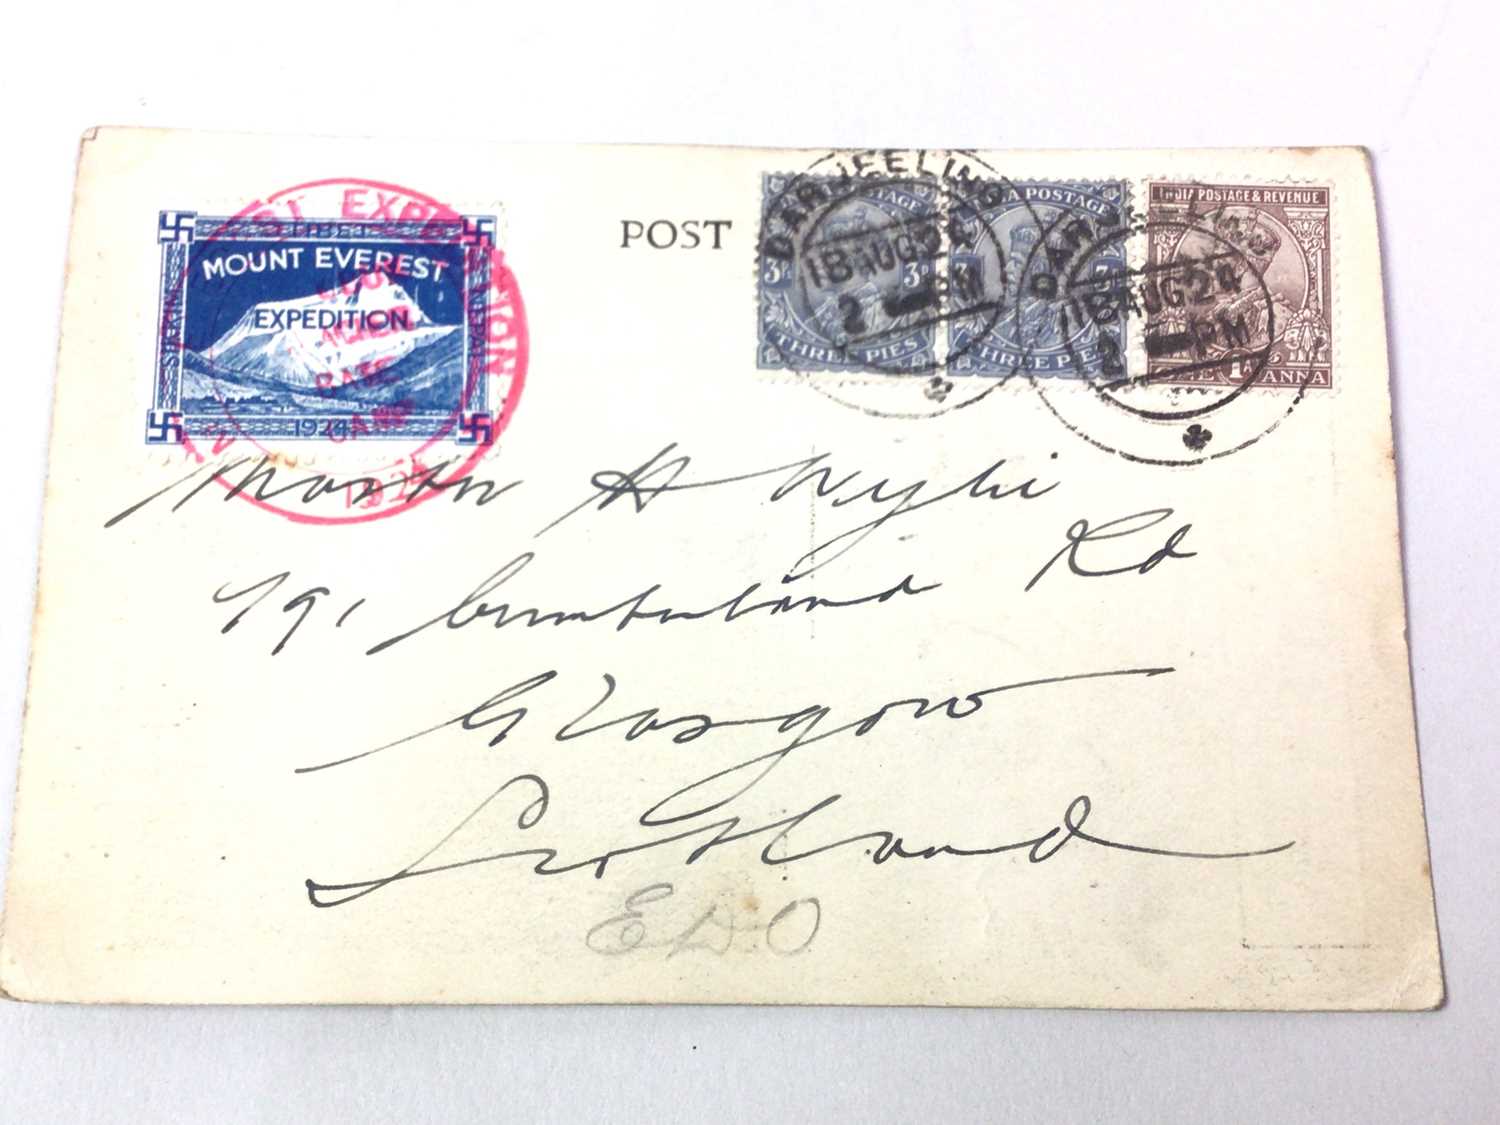 POST
TIBET
MOUNT EVEREST
EXPEDITION
SIKKIM
NEPAL
1924
BASE
CAMP
1924
DARJEELING
18 AUG 24
2 PM
INDIA POSTAGE
3P 3P
THREE PIES
INDIA POSTAGE
THREE PIES
DARJEELING
18 AUG 24
2 PM
INDIA POSTAGE & REVENUE
1A
ONE ANNA
Master H Wylie
791 Cumberland Rd
Glasgow
Scotland